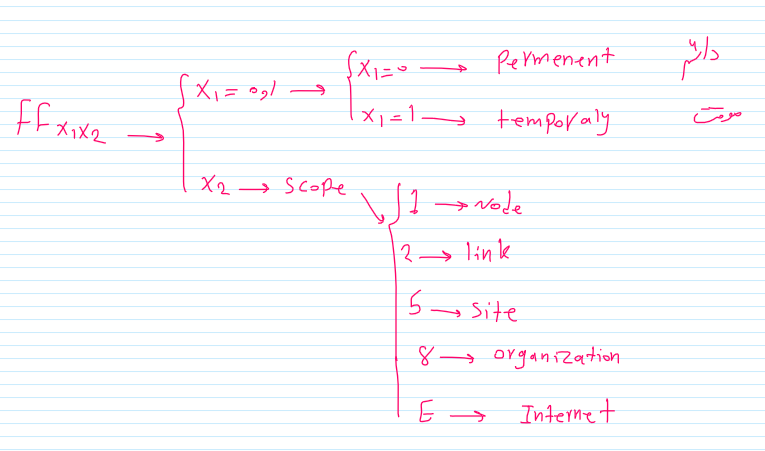 FF X1X2 → X1 = 0,1 → X1=0 → Permenent دایم
X1=1 → temporaly موقت
X2 → scope
1 → Node
2 → link
5 → site
8 → organization
E → Internet